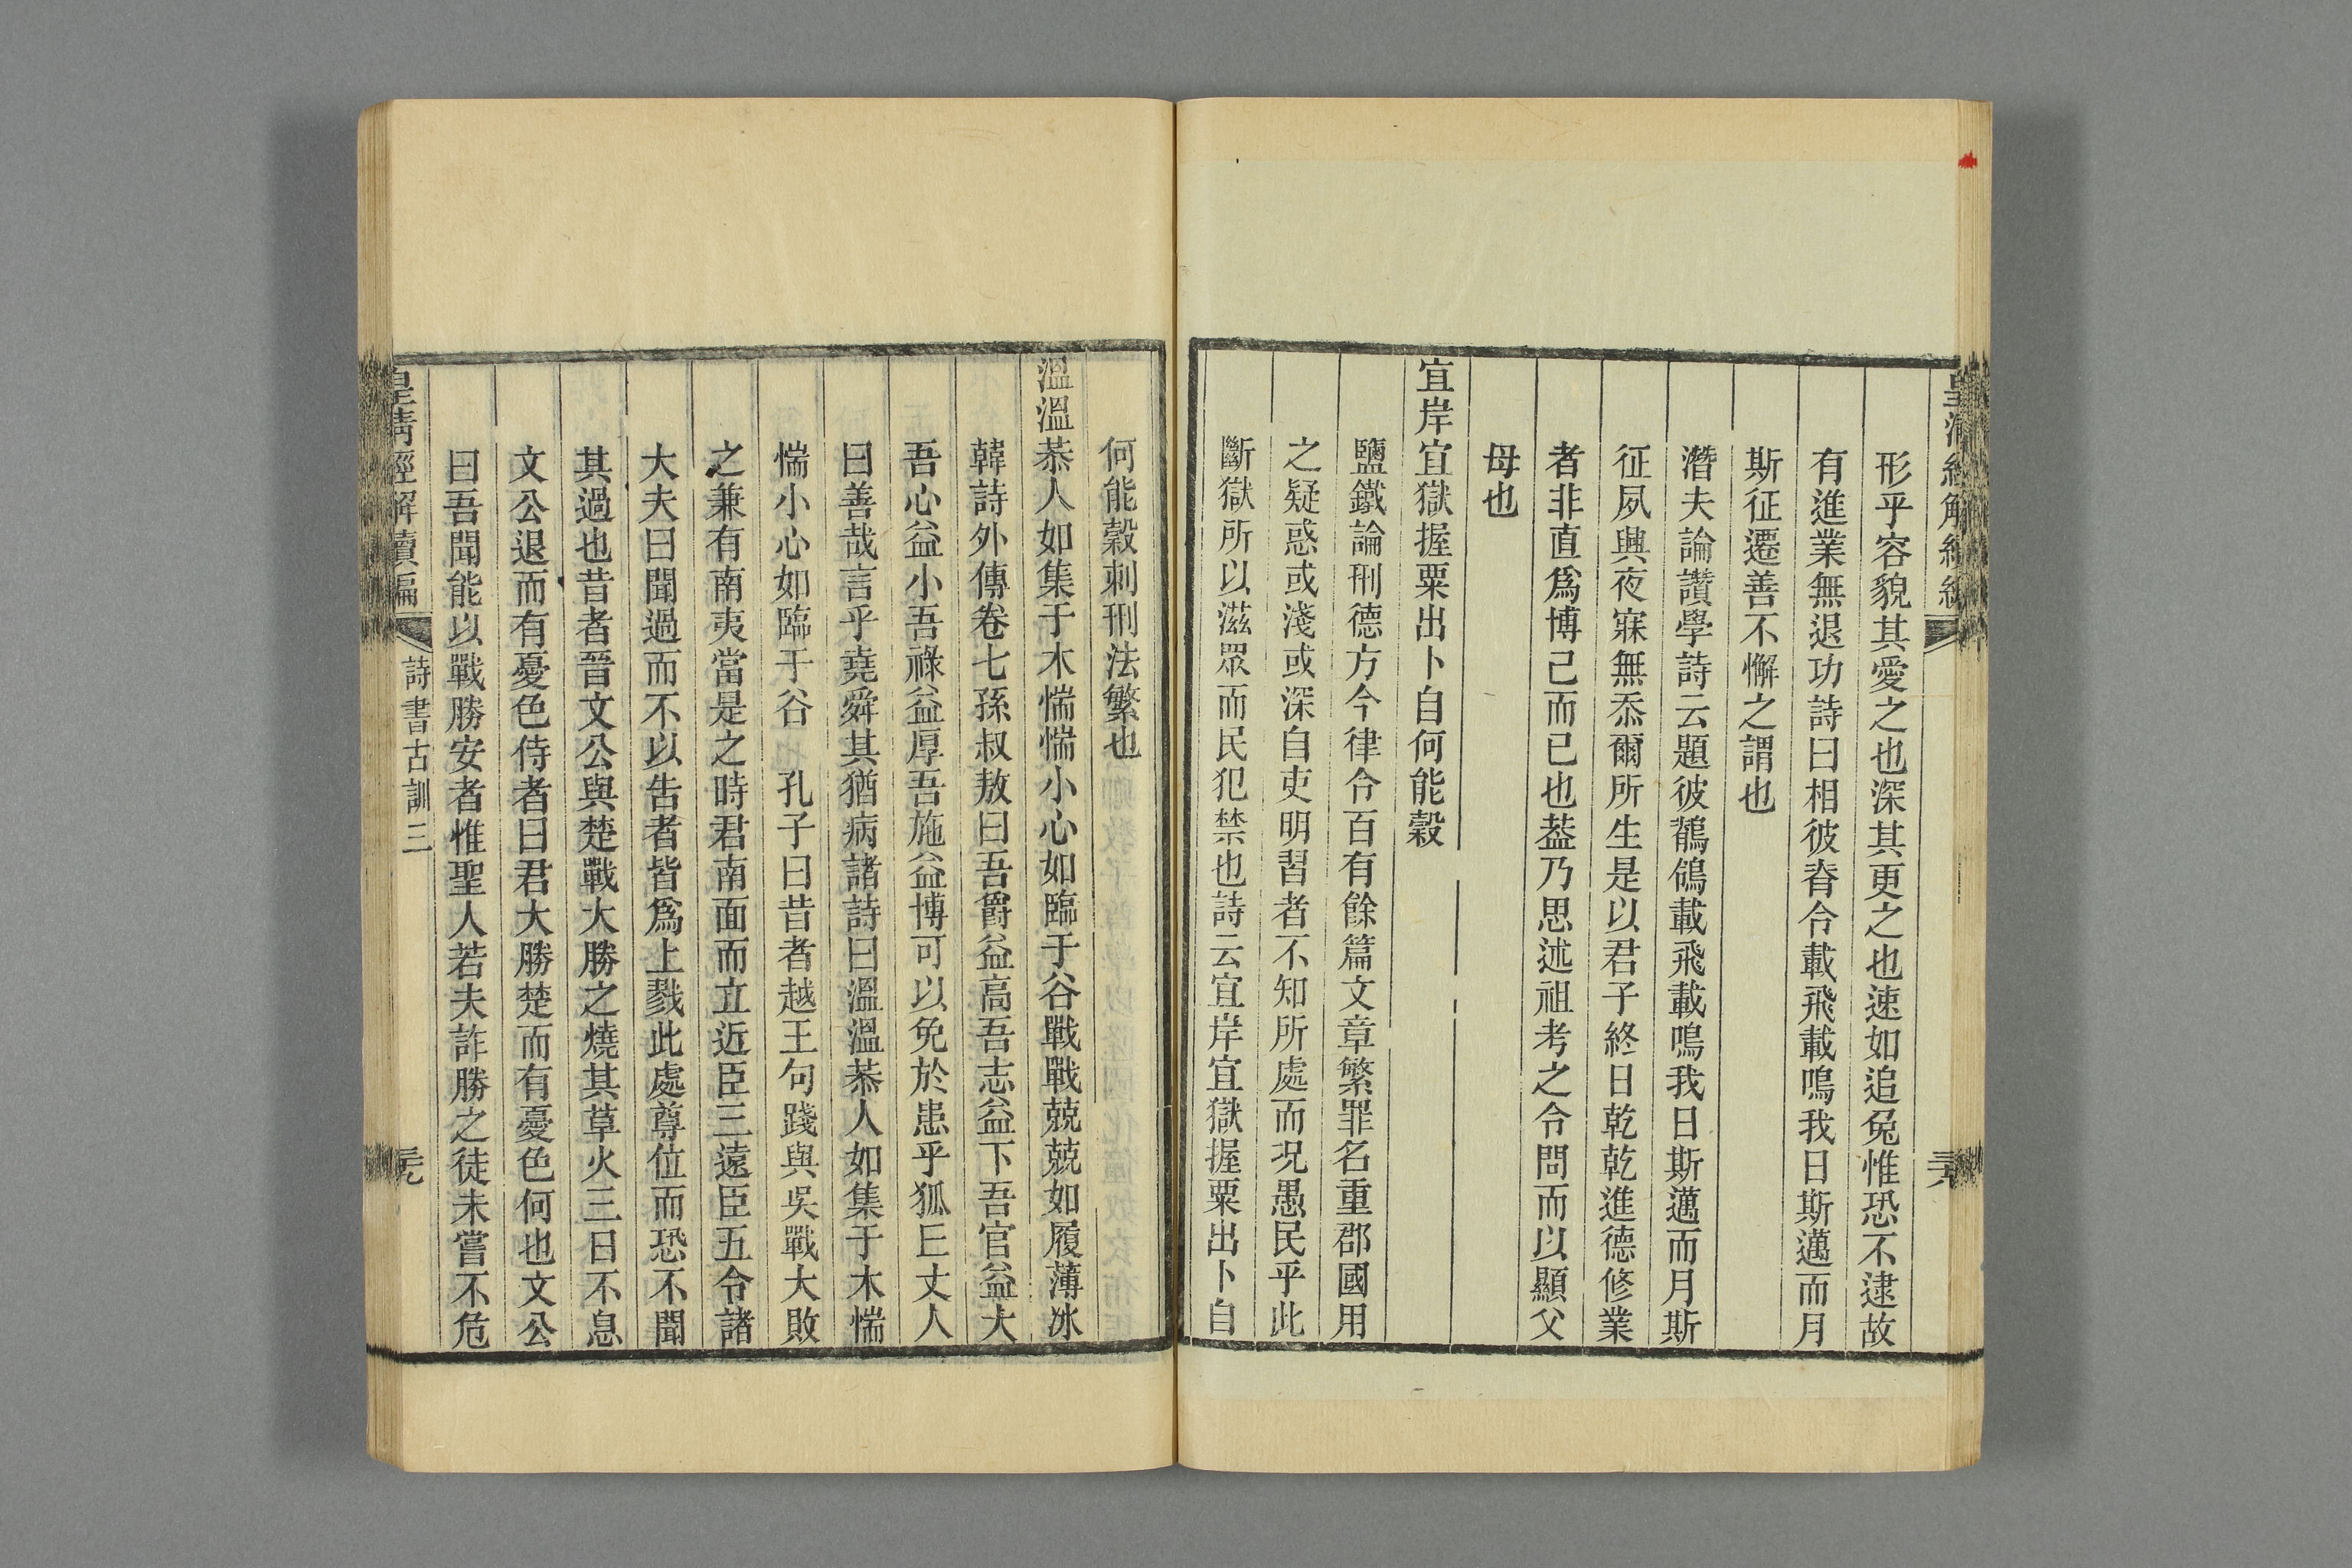 形乎容貌其愛之也深其更之也速如追兔惟恐不逮故
有進業無退功詩曰相彼脊令載飛載鳴我日斯邁而月
斯征遷善不懈之謂也
潛夫論讚學詩云題彼鶺鴒載飛載鳴我日斯邁而月斯
征夙興夜寐無忝爾所生是以君子終日乾乾進德修業
者非直爲博己而已也葢乃思述祖考之令問而以顯父
母也
宜岸宜獄握粟出卜自何能穀
鹽鐵論刑德方今律令百有餘篇文章繁罪名重郡國用
之疑惑或淺或深自吏明習者不知所處而況愚民乎此
斷獄所以滋眾而民犯禁也詩云宜岸宜獄握粟出卜自
何能穀刺刑法繁也
溫溫恭人如集于木惴惴小心如臨于谷戰戰兢兢如履薄冰
韓詩外傳卷七孫叔敖曰吾爵益高吾志益下吾官益大
吾心益小吾祿益厚吾施益博可以免於患乎狐𠀉丈人
曰善哉言乎堯舜其猶病諸詩曰溫溫恭人如集于木惴
惴小心如臨于谷 孔子曰昔者越王句踐與吳戰大敗
之兼有南夷當是之時君南面而立近臣三遠臣五令諸
大夫曰聞過而不以告者皆爲上戮此處尊位而恐不聞
其過也昔者晉文公與楚戰大勝之燒其草火三日不息
文公退而有憂色侍者曰君大勝楚而有憂色何也文公
曰吾聞能以戰勝安者惟聖人若夫詐勝之徒未嘗不危
皇清經解續編
詩書古訓三